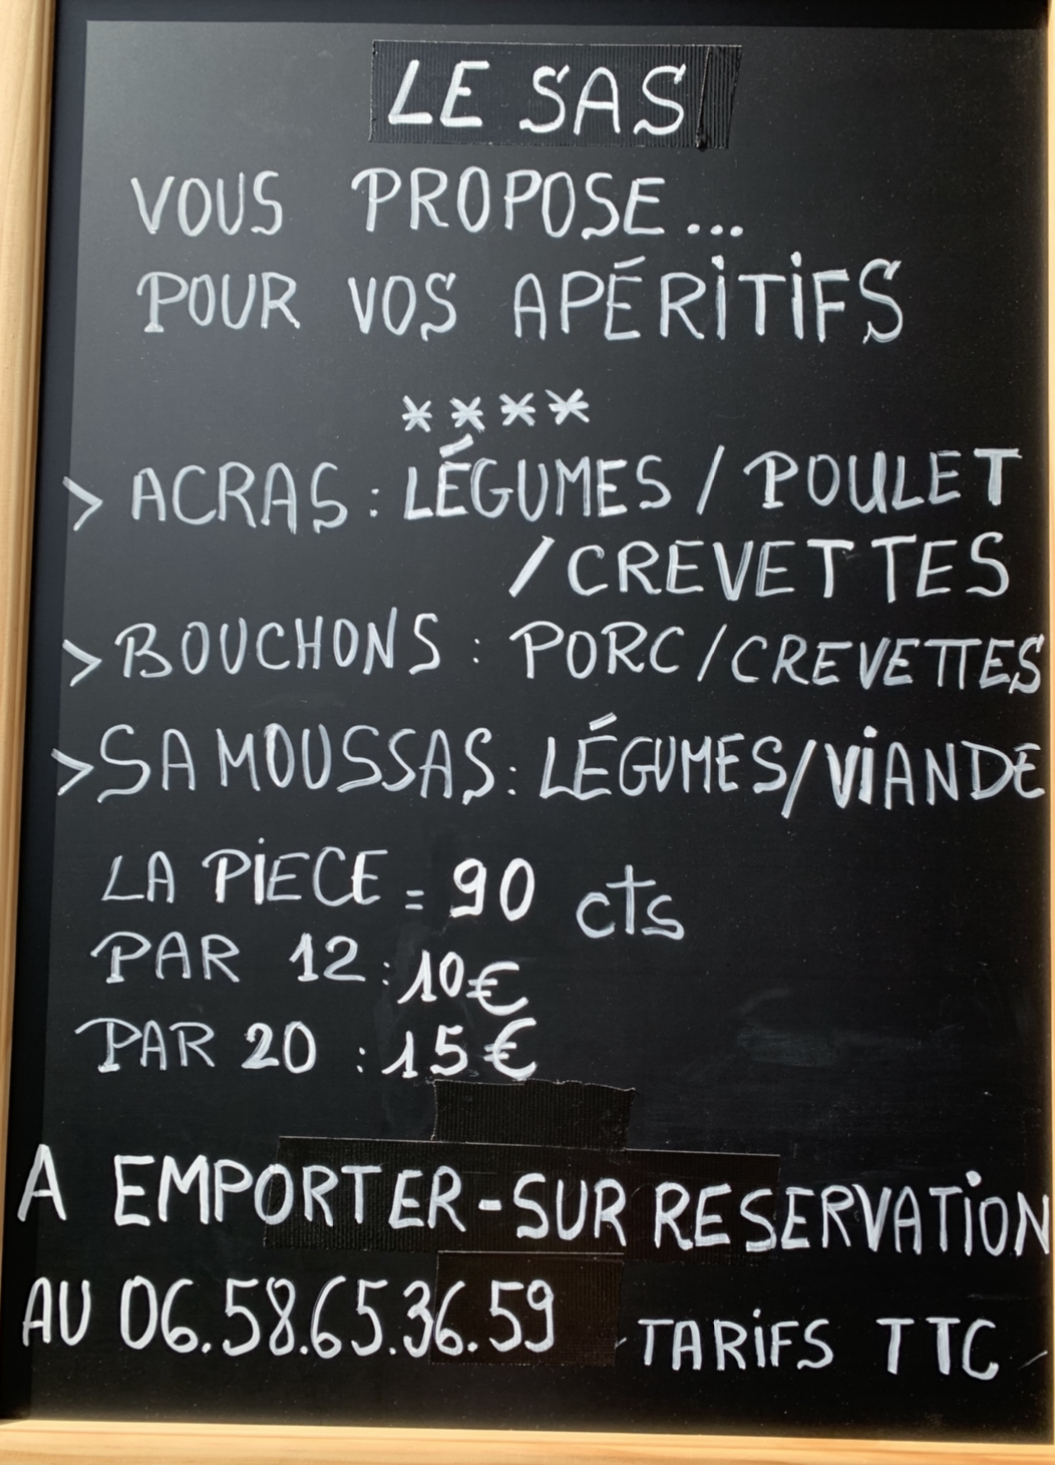 LE SAS
VOUS PROPOSE...
POUR VOS APÉRITIFS
****
> ACRAS : LÉGUMES / POULET
/ CREVETTES
> BOUCHONS : PORC / CREVETTES
> SAMOUSSAS : LÉGUMES / VIANDE
LA PIECE = 90 cts
PAR 12 : 10€
PAR 20 : 15€
A EMPORTER - SUR RESERVATION
AU 06.58.65.36.59 TARIFS TTC